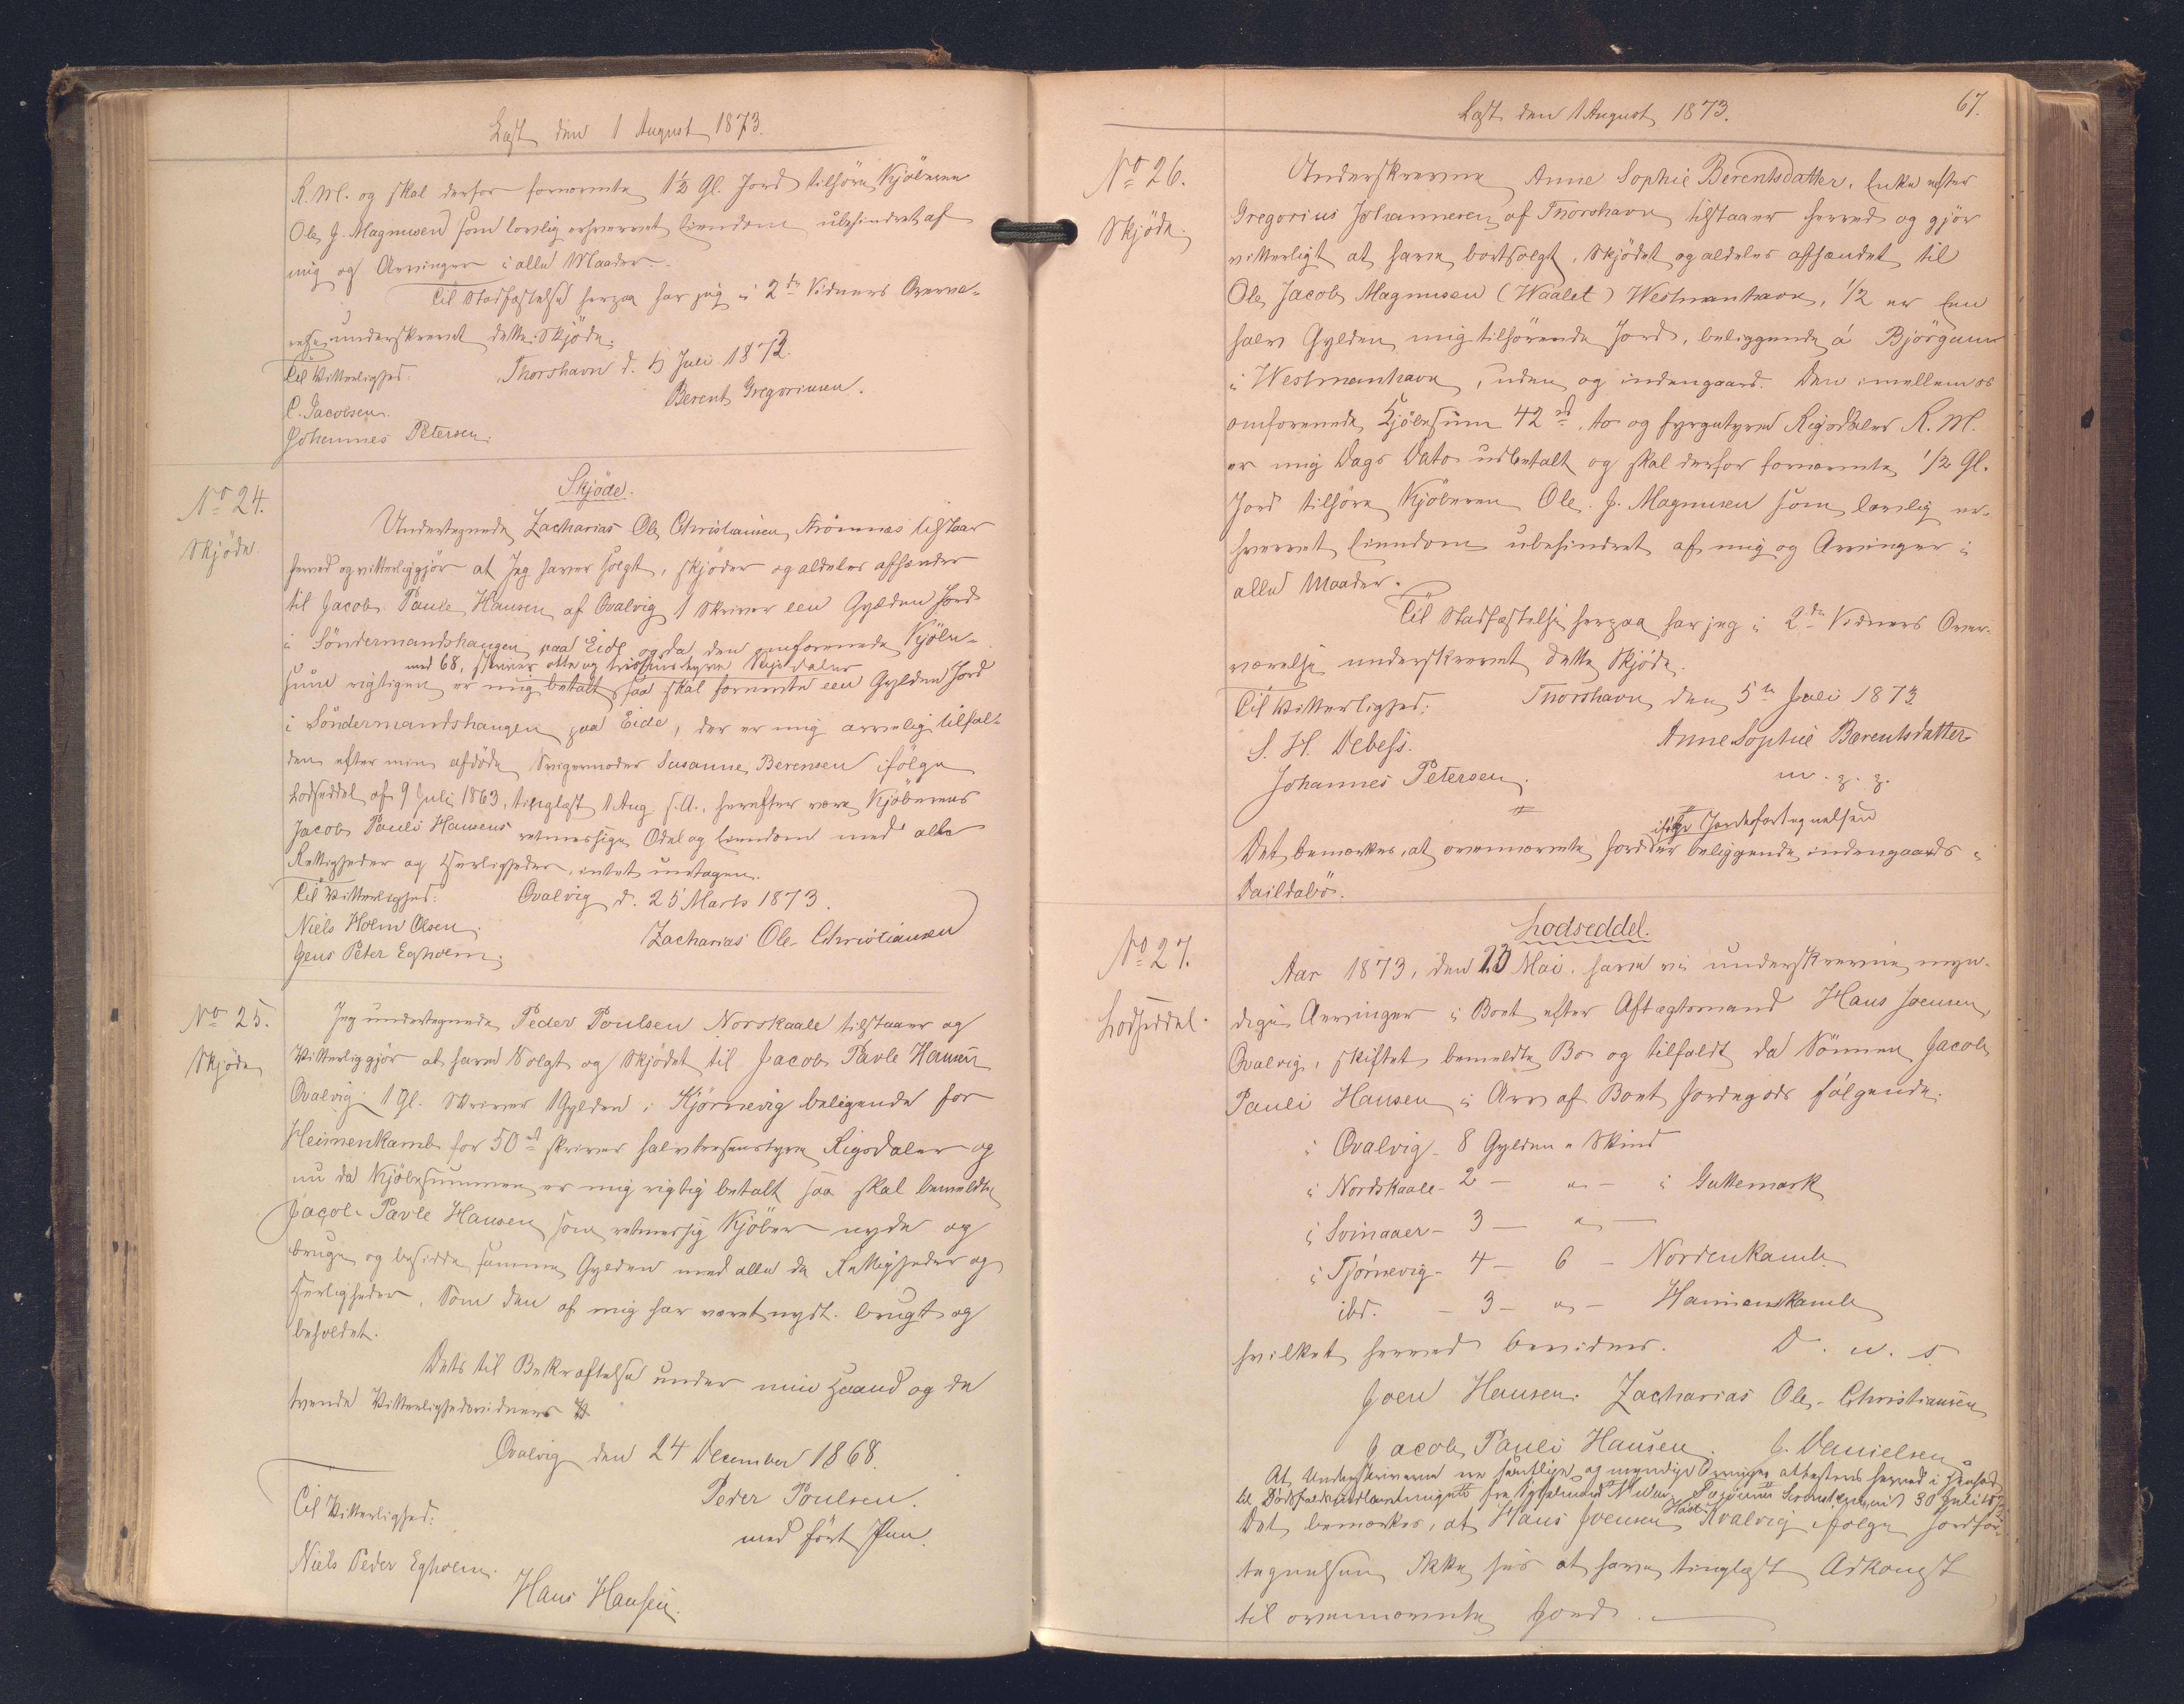 Læst den 1 August 1873.
R. M. og skal derfor fornævnte 1½ Gl. Jord tilhøre Kjöberen
Ole J. Magnusen som lovlig erhvervet Eiendom ubehindret af
mig og Arvinger i alle Maader.
Til Stadfæstelse herpaa har jeg i 2de Vidners Overvæ-
relse underskrevet dette Skjöde.
Til Vitterlighed: Thorshavn d. 5 Juli 1873.
C. Jacobsen. Berent Gregorisen.
Johannes Petersen.
No 24.
Skjöde.
Skjöde.
Undertegnede Zacharias Ole Christiansen, Strömnæs tilstaar
herved og vitterliggjör at Jeg haver solgt, skjöder og aldeles afhænder
til Jacob Paule Hansen af Qvalvig 1 skriver een Gylden Jord
i Söndermandshaugen paa Eide og da den omforenede Kjöbe-
med 68, skriver otte og tresindstyve Rigsdaler
sum rigtigen er mig betalt, saa skal fornævnte een Gylden Jord
i Söndermandshaugen paa Eide, der er mig arvelig tilfal-
den efter min afdöde Svigermoder Susanne Berensen ifölge
Lodseddel af 9 Juli 1863, tinglæst 1 Aug. s. A., herefter være Kjöberens
Jacob Pauli Hansens retmæssige Odel og Eiendom med alle
Rettigheder og Herligheder, intet undtagen.
Til Vitterlighed: Qvalvig d. 25 Marts 1873.
Niels Holm Olsen. Zacharias Ole Christiansen
Jens Peter Egholm.
No 25.
Skjöde
Jeg undertegnede Peder Poulsen Norskaale tilstaaer og
Vitterliggjør at have Solgt og Skjödet til Jacob Pavle Hansen
Qvalvig 1 Gl. skriver 1 Gylden i Kjörnevig beligende for
Heimenkamb for 50 rd skriver halvtresenstyve Rigsdaler og
nu da Kjöbesummen er mig rigtig betalt saa skal bemeldte
Jacob Pavle Hansen som retmæssig Kjöber nyde og
bruge og besidde samme Gylden med alle de Rettigheder og
Herligheder, Som den af mig har været nydt. brugt og
beholdet.
Dets til Bekræftelse under min Haand og de
tvende Vitterlighedsvidners
Qvalvig den 24 December 1868.
Til Vitterlighed: Peder Poulsen.
med fört Pen.
Niels Peder Egholm.
Hans Hansen.
67.
Læst den 1 August 1873.
No 26.
Skjöde.
Underskrevne Anne Sophie Berentsdatter, Enke efter
Gregorius Johannesen af Thorshavn tilstaaer herved og gjör
vitterligt at have bortsolgt, Skjödet og aldeles afhændet til
Ole Jacob Magnusen (Waalet) Westmanhavn, 1/2 er een
halv Gylden mig tilhörende Jord, beliggende á Björgum
i Westmanhavn, uden og indengaard. Den imellem os
omforenede Kjöbesum 42 rd, to og fyrgetyve Rigsdaler R. M.
er mig Dags Dato udbetalt og skal derfor fornævnte 1/2 Gl.
Jord tilhöre Kjöberen Ole. J. Magnusen som lovlig er-
hvervet Eiendom ubehindret af mig og Arvinger i
alle Maader.
Til Stadfæstelse herpaa har jeg i 2de Vidners Over-
værelse underskrevet dette Skjöde.
Til Vitterlighed: Thorshavn den 5te Juli 1873
S. H. Debess. Anne Sophie Bærentsdatter
Johannes Petersen. m. p. p.
ifölge Jordefortegnelsen
Det bemærkes, at ovennævnte Jord er beliggende indengaards i
Daildabö.
No 27.
Lodseddel.
Lodseddel.
Aar 1873, den 23 Mai. have vi underskrevne myn-
dige Arvinger i Boet efter Aftægtsmand Hans Joensen,
Qvalvig, skiftet bemeldte Bo og tilfaldt da Sönnen Jacob
Pauli Hansen i Arv af Boet Jordegods fölgende.
i Qvalvig - 8 Gylden " Skind
i Nordskaale - 2 — " — i Guttemark
i Svinaaer - 3 — " —
i Tjörnevig - 4 — 6 — Nordenkamb
ibd. — 3 — " — Haimenskamb
hvilket herved bevidnes. D. u. s
Joen Hansen. Zacharias Ole Christiansen
Jacob Pauli Hansen. J. Danielsen
At Underskriverne ere samtlige og myndige Arvinger attesteres herved i Henhold
til Dödsfaldsindberetningen fra 30 Juli 1873
Det bemærkes, at Hans Joensen Kvalvig ifölge Jordfor-
tegnelsen ikke sees at have tinglæst Adkomst
til ovennævnte Jord.